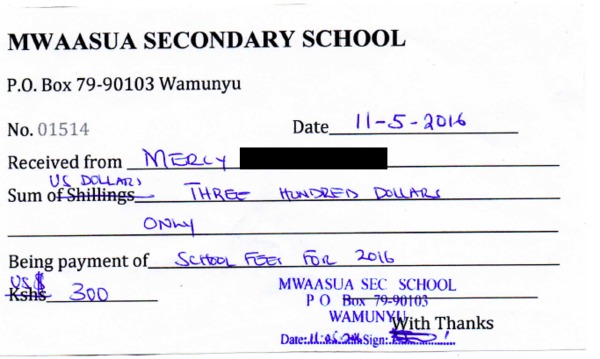 MWAASUA SECONDARY SCHOOL
P.O. Box 79-90103 Wamunyu
No. 01514 Date 11-5-2016
Received from MERCY
US DOLLARS
Sum of Shillings THREE HUNDRED DOLLARS
ONLY
Being payment of SCHOOL FEES FOR 2016
US $
Kshs 300
MWAASUA SEC SCHOOL
P O Box 79-90103
WAMUNYU
With Thanks
Date: 11.05.2016 Sign: